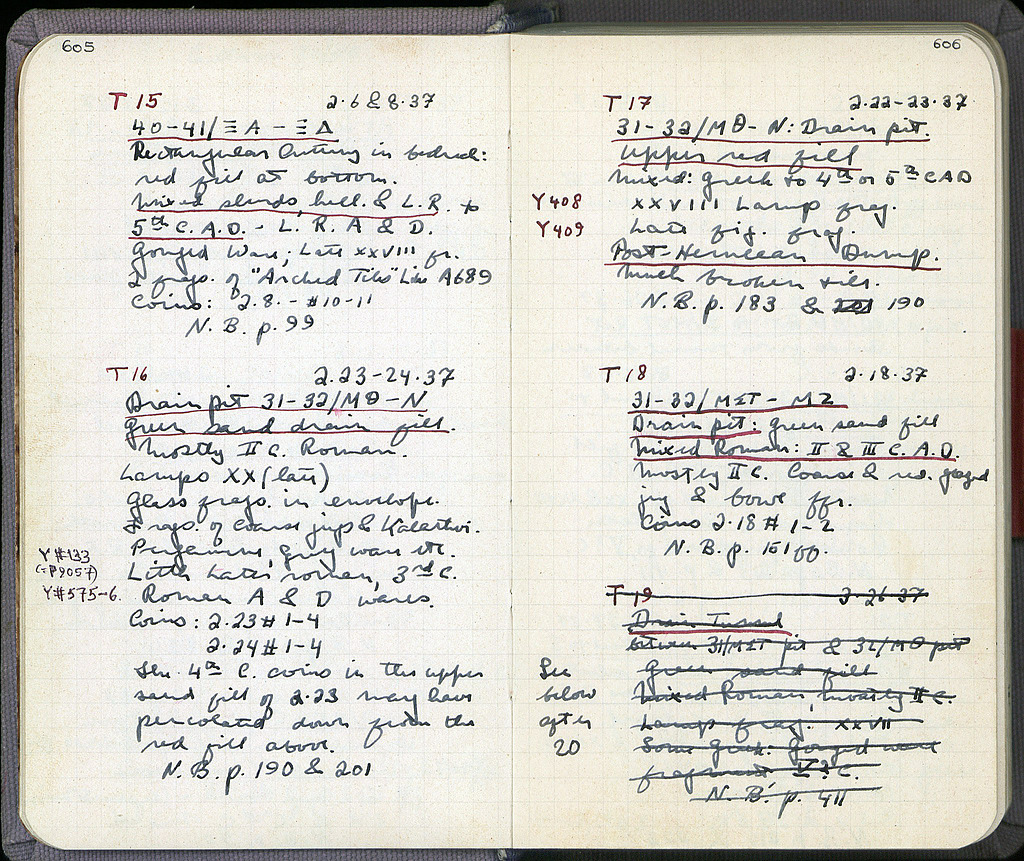 605
T 15 2·6 & 8·37
40-41/Ξ A - Ξ Δ
Rectangular cutting in bedrock:
red fill at bottom.
Mixed sherds, hell. & L.R. to
5th C. A.D. - L. R. A & D.
Gouged Ware; Late XXVIII fr.
2 frags. of "Arched Tiles" like A689
Coins: 2.8. - #10-11
N. B. p. 99
T 16 2.23-24.37
Drain pit 31-32/MΘ-N
Green sand drain fill.
Mostly II C. Roman.
Lamps XX (late)
Glass frags. in envelope.
Frags. of coarse jugs & Kalathoi.
Y #133
Pergamene, grey ware etc.
(=P9057)
Little later roman, 3rd C.
Y#575-6.
Roman A & D wares.
Coins: 2.23 # 1-4
2.24 # 1-4
4th C. coins in the upper
sand fill of 2.23 may have
percolated down from the
red fill above.
N. B. p. 190 & 201
606
T 17 2.22-23.37
31-32/MΘ-N: Drain pit.
Upper red fill
Mixed: Greek to 4th or 5th C AD
Y408
XXVIII Lamp frag.
Y409
Late fig. frag.
Post-Herulean Dump.
Much broken tile.
N. B. p. 183 & 201 190
T 18 2.18.37
31-32/MΣT - MZ
Drain pit: green sand fill
Mixed Roman: II & III C. A.D.
Mostly II C. Coarse & gouged
jug & bowl ffr.
Coins 2.18 # 1-2
N. B. p. 151 ff.
T 19 2·26·37
Drain Tunnel
between 31/MΣT pit & 32/MΘ pit
Green sand fill
See
below
after
20
Mixed Roman, mostly II C.
Lamp frag. XXVII
Some Greek. Gouged ware
fragment V? C.
N. B. p. 411